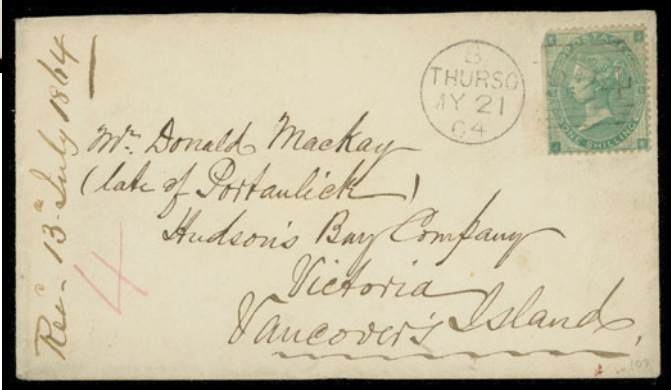 Rec'd 13th July 1864
B
THURSO
MY 21
64
POSTAGE
ONE SHILLING
Mr. Donald Mackay
(late of Portaulick)
Hudson's Bay Company
Victoria
Vancover's Island,
4
107